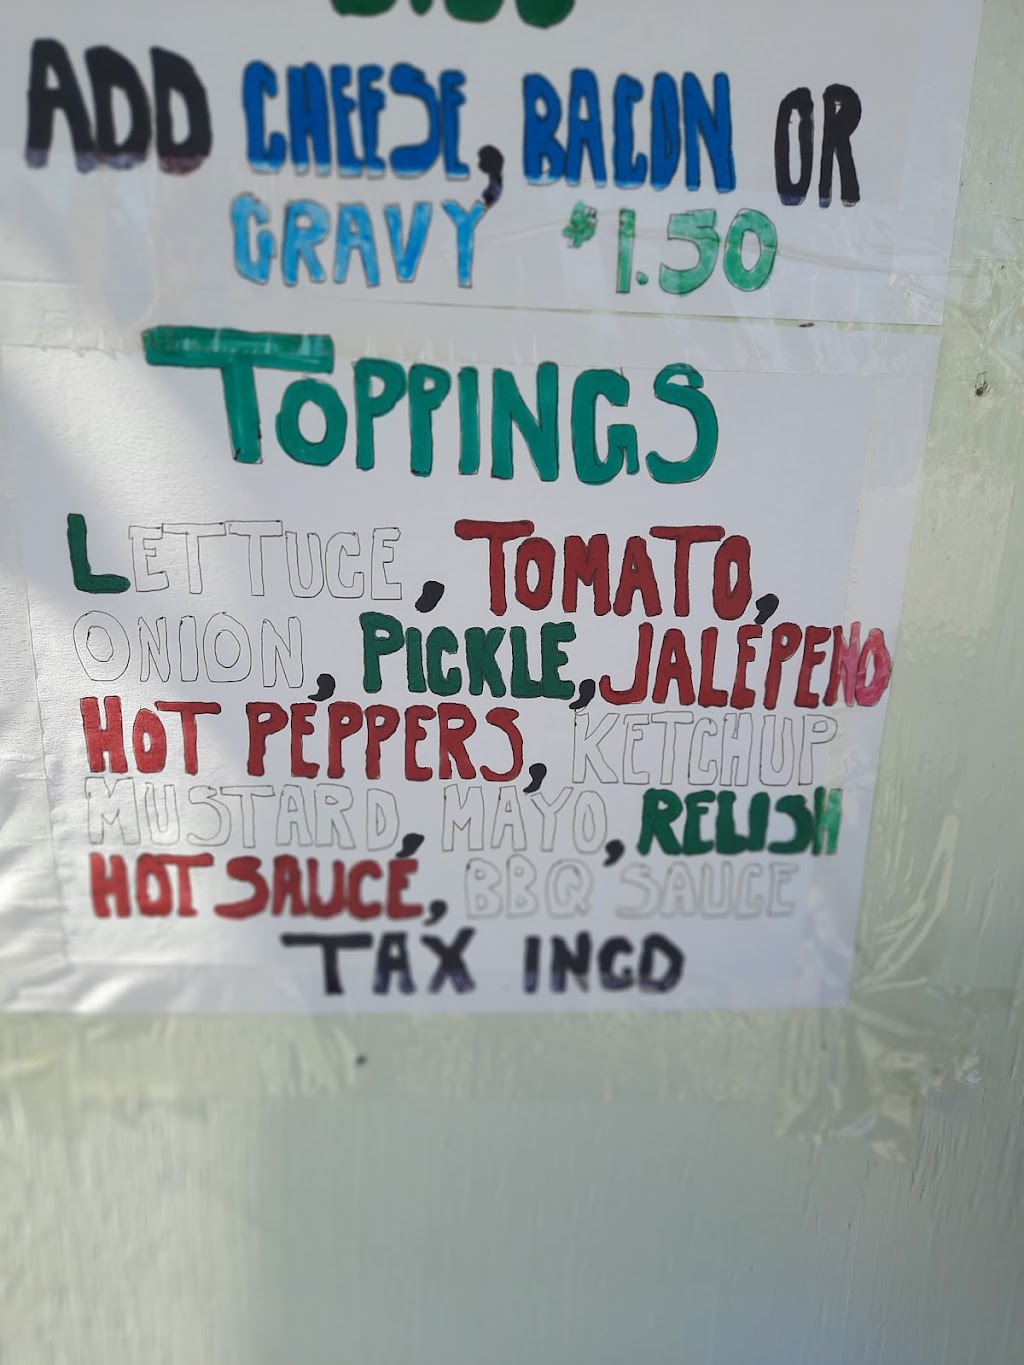 ADD CHEESE, BACON OR
GRAVY $1.50
TOPPINGS
LETTUCE, TOMATO,
ONION, PICKLE, JALEPENO
HOT PEPPERS, KETCHUP
MUSTARD, MAYO, RELISH
HOT SAUCE, BBQ SAUCE
TAX INCD